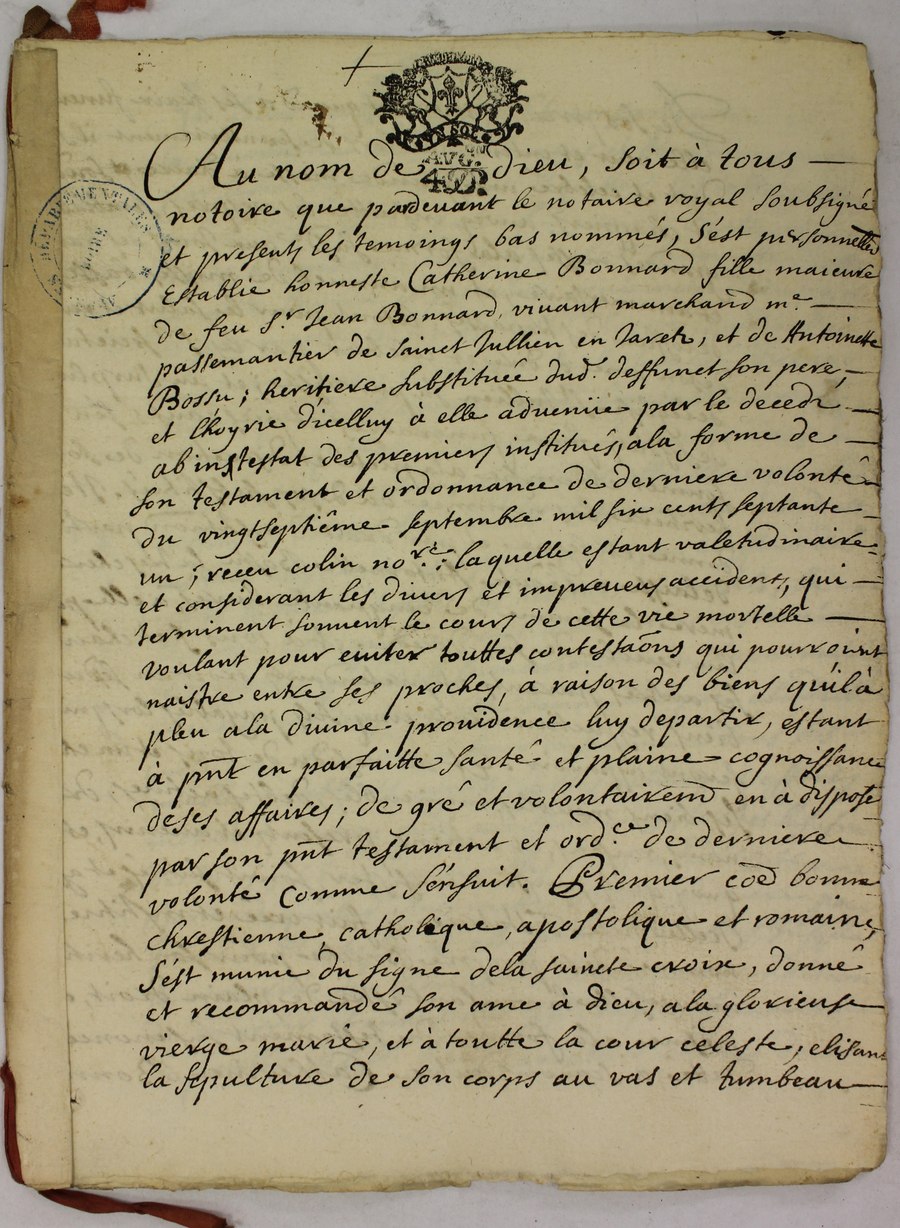 UN SOL
AVG.
4 D.
DEPARTEMENTALES
LOIRE
Au nom de dieu, soit à tous
notoire que pardevant le notaire royal soubsigné
et presents les temoings bas nommés, s'est personnellem̃
Establie honneste Catherine Bonnard fille maieure
de feu Sr. Jean Bonnard, vivant marchand me.
passemantier de Sainct Jullien en Jarets, et de Antoinette
Bossu; heritiere substituée dud. deffunct son pere,
et l'hoyrie d'icelluy à elle advenüe par le decedz
ab instestat des premiers institués, a la forme de
son testament et ordonnance de derniere volonté
du vingtseptiême septembre mil six cents septante
un; receu colin nore.; laquelle estant valetudinaire
et considerant les divers et impreveus accidents, qui
terminent souvent le cours de cette vie mortelle
voulant pour euiter touttes contestaõns qui pourroient
naistre entre ses proches, à raison des biens qu'il à
pleu a la divine providence luy departir, estant
à pñt en parfaitte santé et plaine cognoissance
de ses affaires; de gré et volontairem̃ en à disposé
par son pñt testament et ordce. de derniere
volonté comme s'ensuit. Premier coe bonne
chrestienne, catholique, apostolique et romaine,
s'est munie du signe de la saincte croix, donné
et recommandé son ame à dieu, a la glorieuse
vierge marie, et à toutte la cour celeste, elisant
la sepulture de son corps au vas et tumbeau